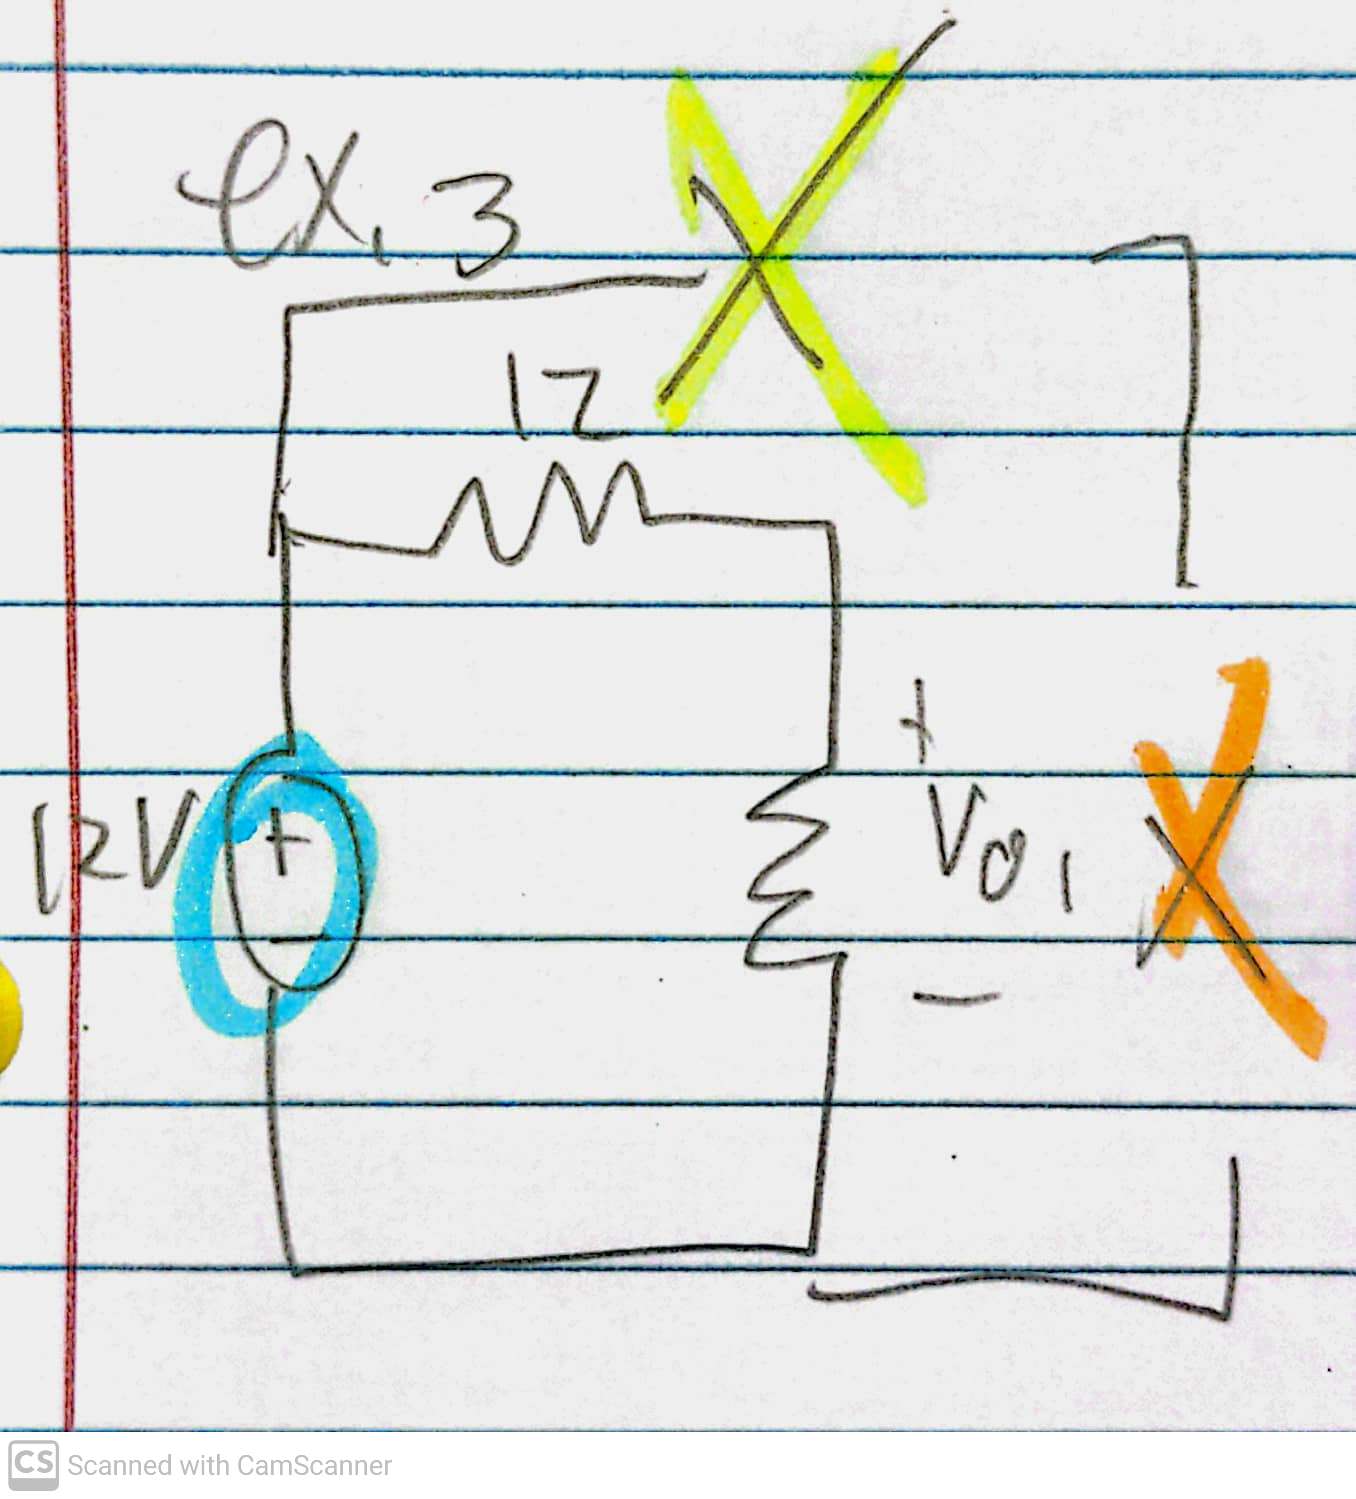 ex. 3
12
12V
+
-
+
Vo1
-
CS Scanned with CamScanner